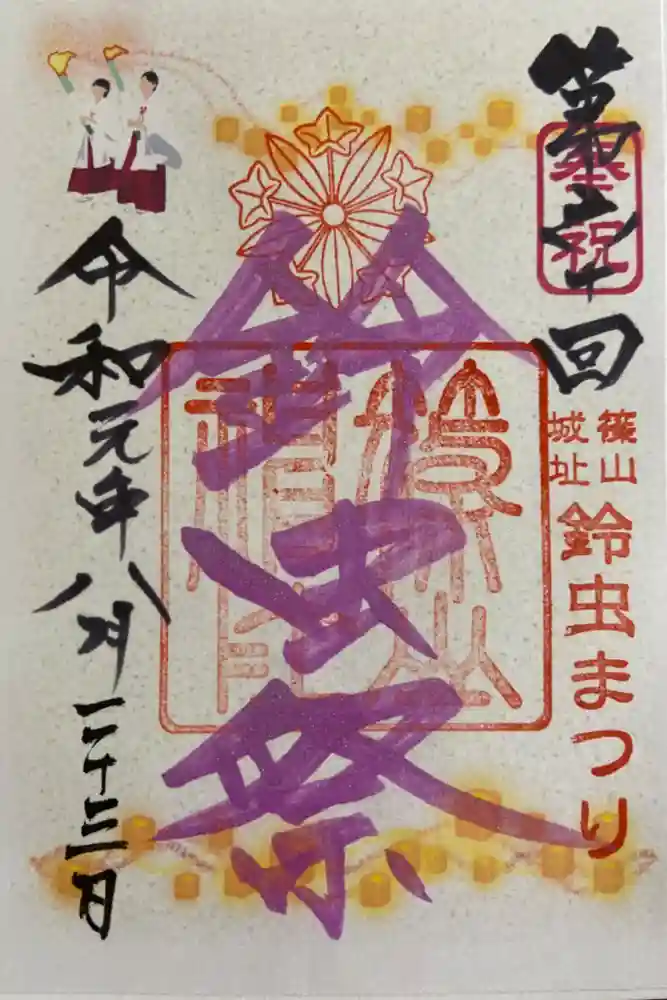 第六十回
奉祝
篠山
城址
鈴虫まつり
鈴虫祭
篠山
神社
令和元年八月二十三日